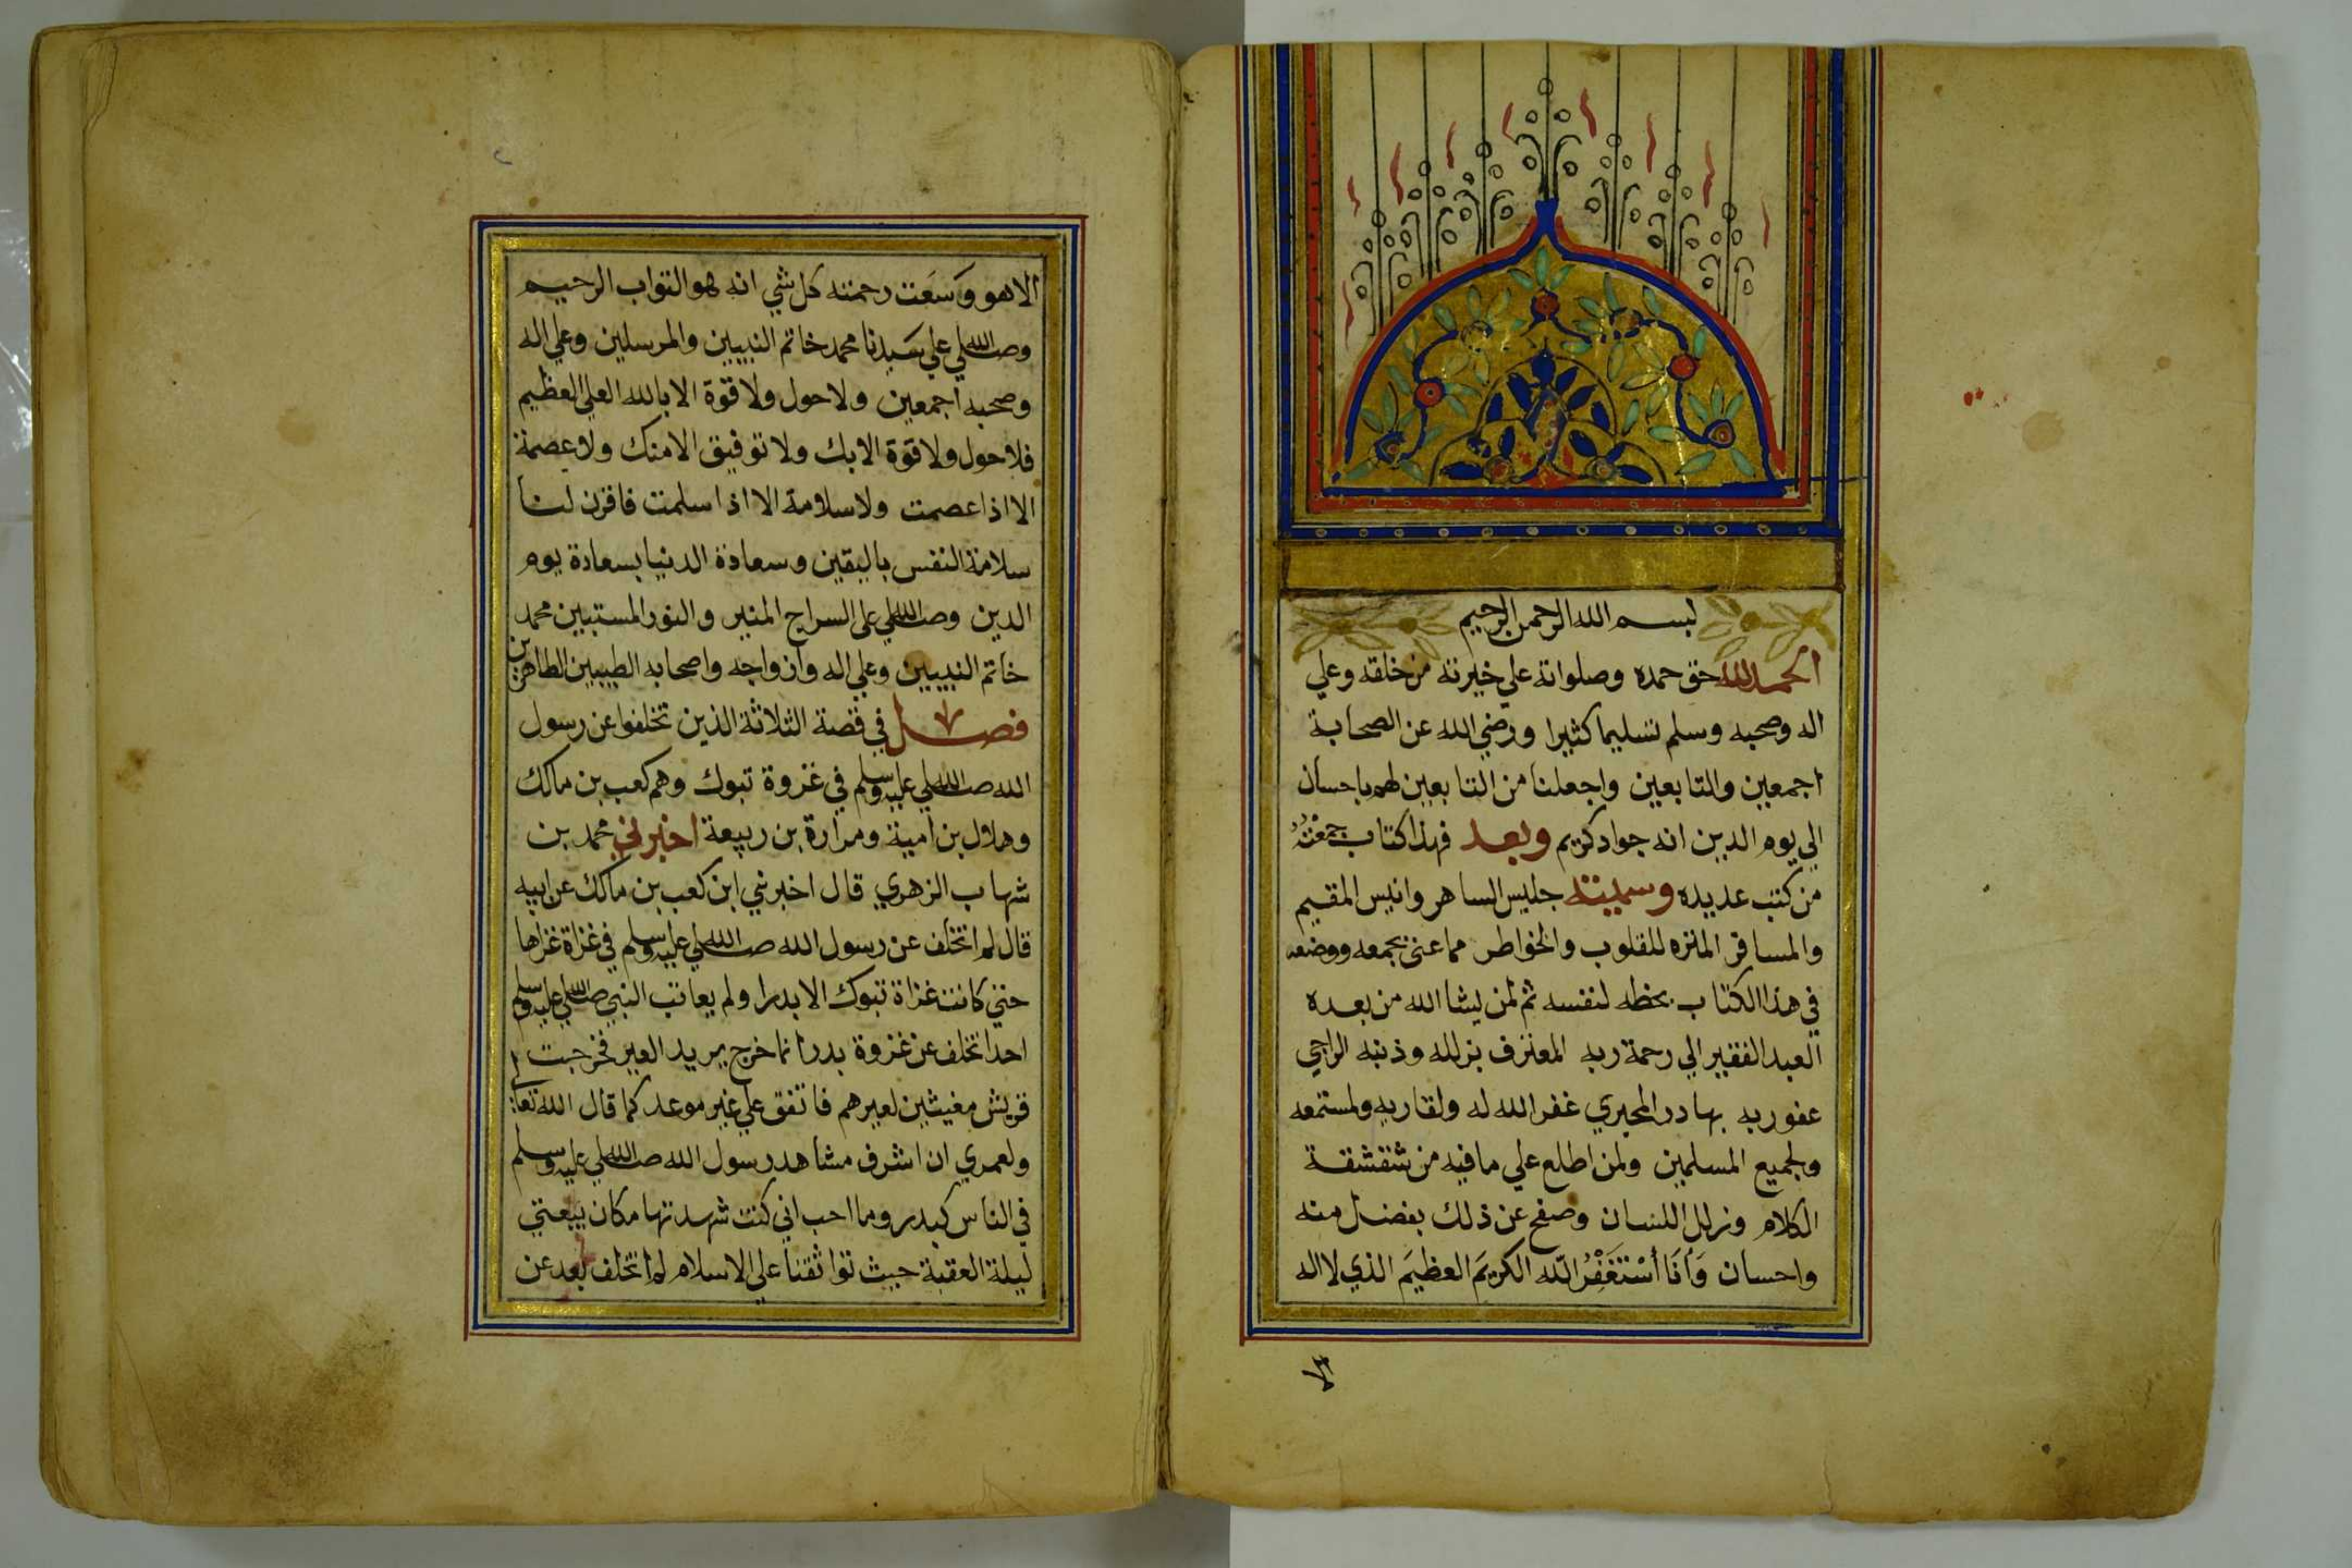 بسم الله الرحمن الرحيم
الحمد لله حق حمده وصلواته علي خيرته من خلقه وعلي
اله وصحبه وسلم تسليما كثيرا ورضي الله عن الصحابة
اجمعين والتابعين واجعلنا من التابعين لهم باحسان
الي يوم الدين انه جواد كريم وبعد فهذا كتاب جمعته
من كتب عديده وسميته جليس الساهر وانيس المقيم
والمسافر المنزه للقلوب والخواطر مما عني بجمعه ووضعه
في هذا الكتاب بخطه لنفسه ثم لمن يشا الله من بعده
العبد الفقير الي رحمة ربه المعترف بزلله وذنبه الراجي
عفو ربه بهادر المحيري غفر الله له ولقاريه ولمستمعه
ولجميع المسلمين ولمن اطلع علي ما فيه من شقشقة
الكلام وزلل اللسان وصفح عن ذلك بفضل منه
واحسان وَأَنَا أَسْتَغْفِرُ اللّه الكريمَ العظيمَ الذي لا اله
الا هو وَسَعَت رحمته كل شي انه هو التواب الرحيم
وصلي الله علي سيدنا محمد خاتم النبيين والمرسلين وعلي اله
وصحبه اجمعين ولا حول ولا قوة الا بالله العلي العظيم
فلا حول ولا قوة الا بك ولا توفيق الا منك ولا عصمة
الا اذا عصمت ولا سلامة الا اذا سلمت فاقرن لنا
سلامة النفس باليقين وسعادة الدنيا بسعادة يوم
الدين وصلي الله علي السراج المنير والنور المستبين محمد
خاتم النبيين وعلي اله وازواجه واصحابه الطيبين الطاهرين
فصل في قصة الثلاثة الذين تخلفوا عن رسول
الله صلي الله عليه وسلم في غزوة تبوك وهم كعب بن مالك
وهلال بن امية ومرارة بن ربيعة اخبرني محمد بن
شهاب الزهري قال اخبرني ابن كعب بن مالك عن ابيه
قال لم اتخلف عن رسول الله صلي الله عليه وسلم في غزاة غزاها
حتي كانت غزاة تبوك الا بدرا ولم يعاتب النبي صلي الله عليه وسلم
احدا تخلف عن غزوة بدر انما خرج يريد العير فخرجت
قريش مغيثين لعيرهم فاتفق علي غير موعد كما قال الله تعا
ولعمري ان اشرف مشاهد رسول الله صلي الله عليه وسلم
في الناس كبدر وما احب اني كنت شهدتها مكان بيعتي
ليلة العقبة حيث تواثقنا علي الاسلام لم اتخلف بعد عن